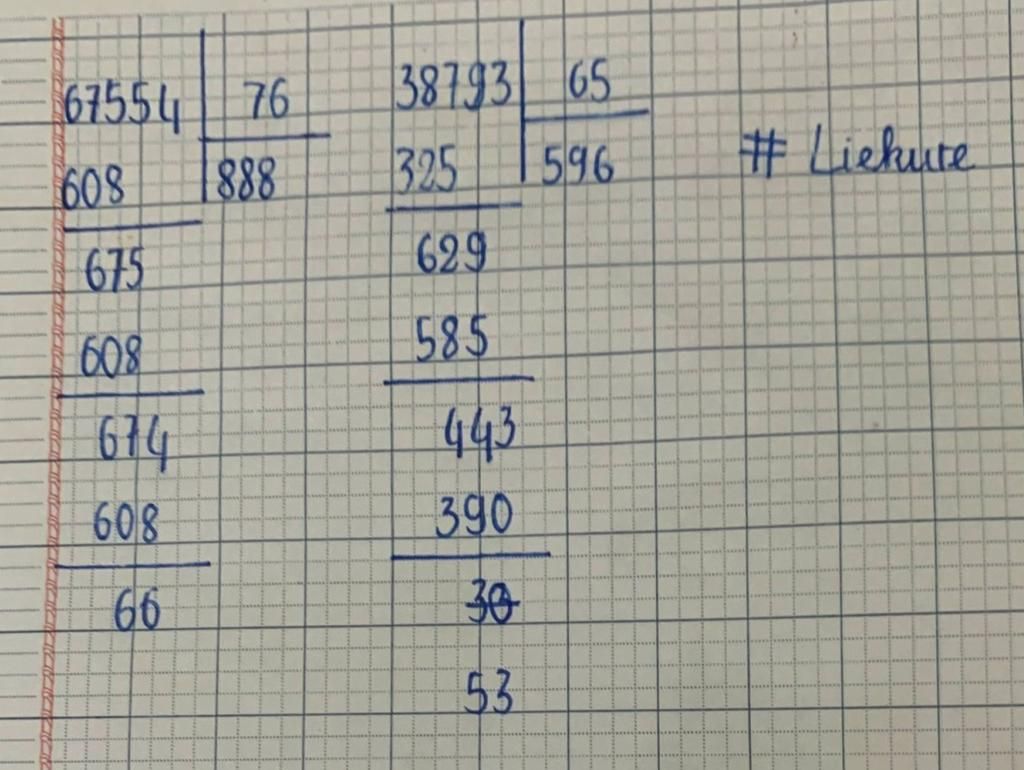 67554 76 38793 65
608 888 325 596 # Liekure
675 629
608 585
674 443
608 390
66 30
53